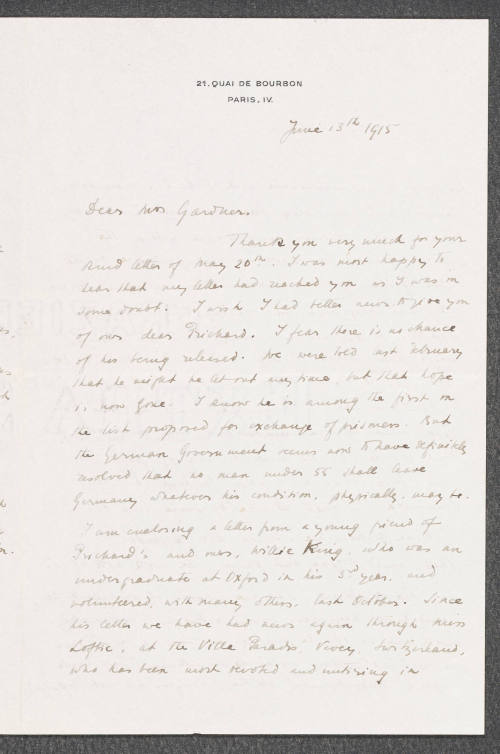 21, QUAI DE BOURBON
PARIS, IV.
June 13th 1915
Dear Mrs Gardner.
Thank you very much for your
kind letter of May 20th. I was most happy to
hear that my letter had reached you as I was in
some doubt. I wish I had better news to give you
of our dear Prichard. I fear there is no chance
of his being released. We were told last February
that he might be let out any time, but that hope
is now gone. I know he is among the first on
the list proposed for exchange of prisoners. But
the German Government seems now to have definitely
resolved that no man under 55 shall leave
Germany whatever his condition, physically, may be.
I am enclosing a letter from a young friend of
Prichard's and ours, Willie King, who was an
undergraduate at Oxford in his 3rd year, and
volunteered, with many others, last October. Since
his letter we have had news again through Miss
Loftie, at the Villa Paradis, Vevey, Switzerland,
who has been most devoted and untiring in